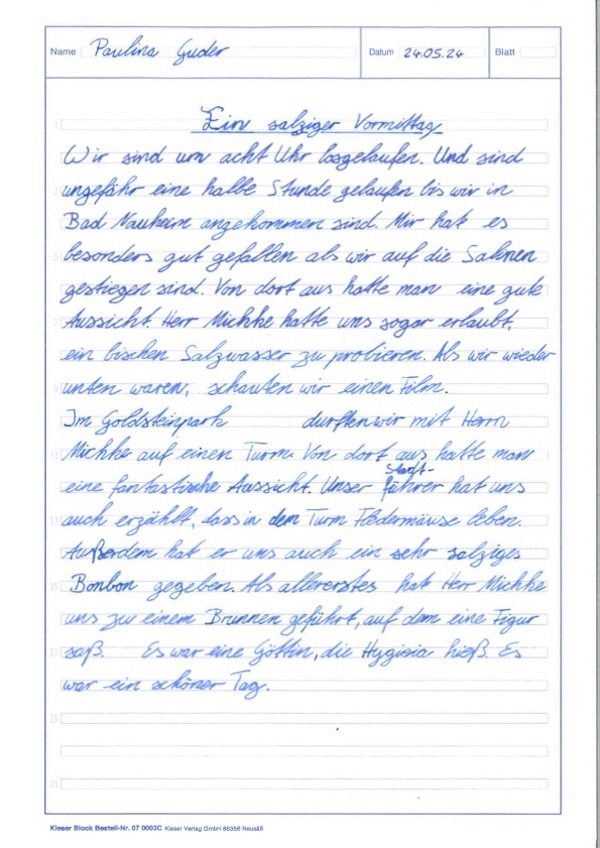 Name Paulina Guder Datum 24.05.24 Blatt
Ein salziger Vormittag
Wir sind um acht Uhr losgelaufen. Und sind
ungefähr eine halbe Stunde gelaufen bis wir in
Bad Nauheim angekommen sind. Mir hat es
besonders gut gefallen als wir auf die Salinen
gestiegen sind. Von dort aus hatte man eine gute
Aussicht. Herr Michke hatte uns sogar erlaubt,
ein bischen Salzwasser zu probieren. Als wir wieder
unten waren, schauten wir einen Film.
Im Goldsteinpark durften wir mit Herrn
Michke auf einen Turm. Von dort aus hatte man
Stadt-
eine fantastische Aussicht. Unser führer hat uns
auch erzählt, dass in dem Turm Fledermäuse leben.
Außerdem hat er uns auch ein sehr salziges
Bonbon gegeben. Als allererstes hat Herr Michke
uns zu einem Brunnen geführt, auf dem eine Figur
saß. Es war eine Göttin, die Hygieia hieß. Es
war ein schöner Tag.
Kieser Block Bestell-Nr. 07 0003C Kieser Verlag GmbH 86356 Neusäß